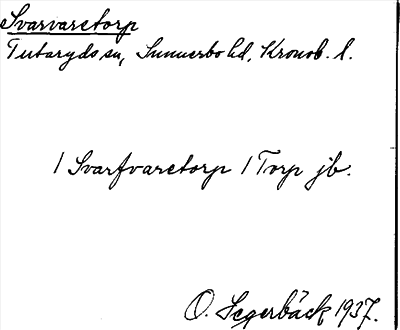 Svarvaretorp
Tutaryds sn, Sunnerbo hd, Kronob. l.
/ Svarfvaretorp / Torp jb.
O. Segerbäck 1937.